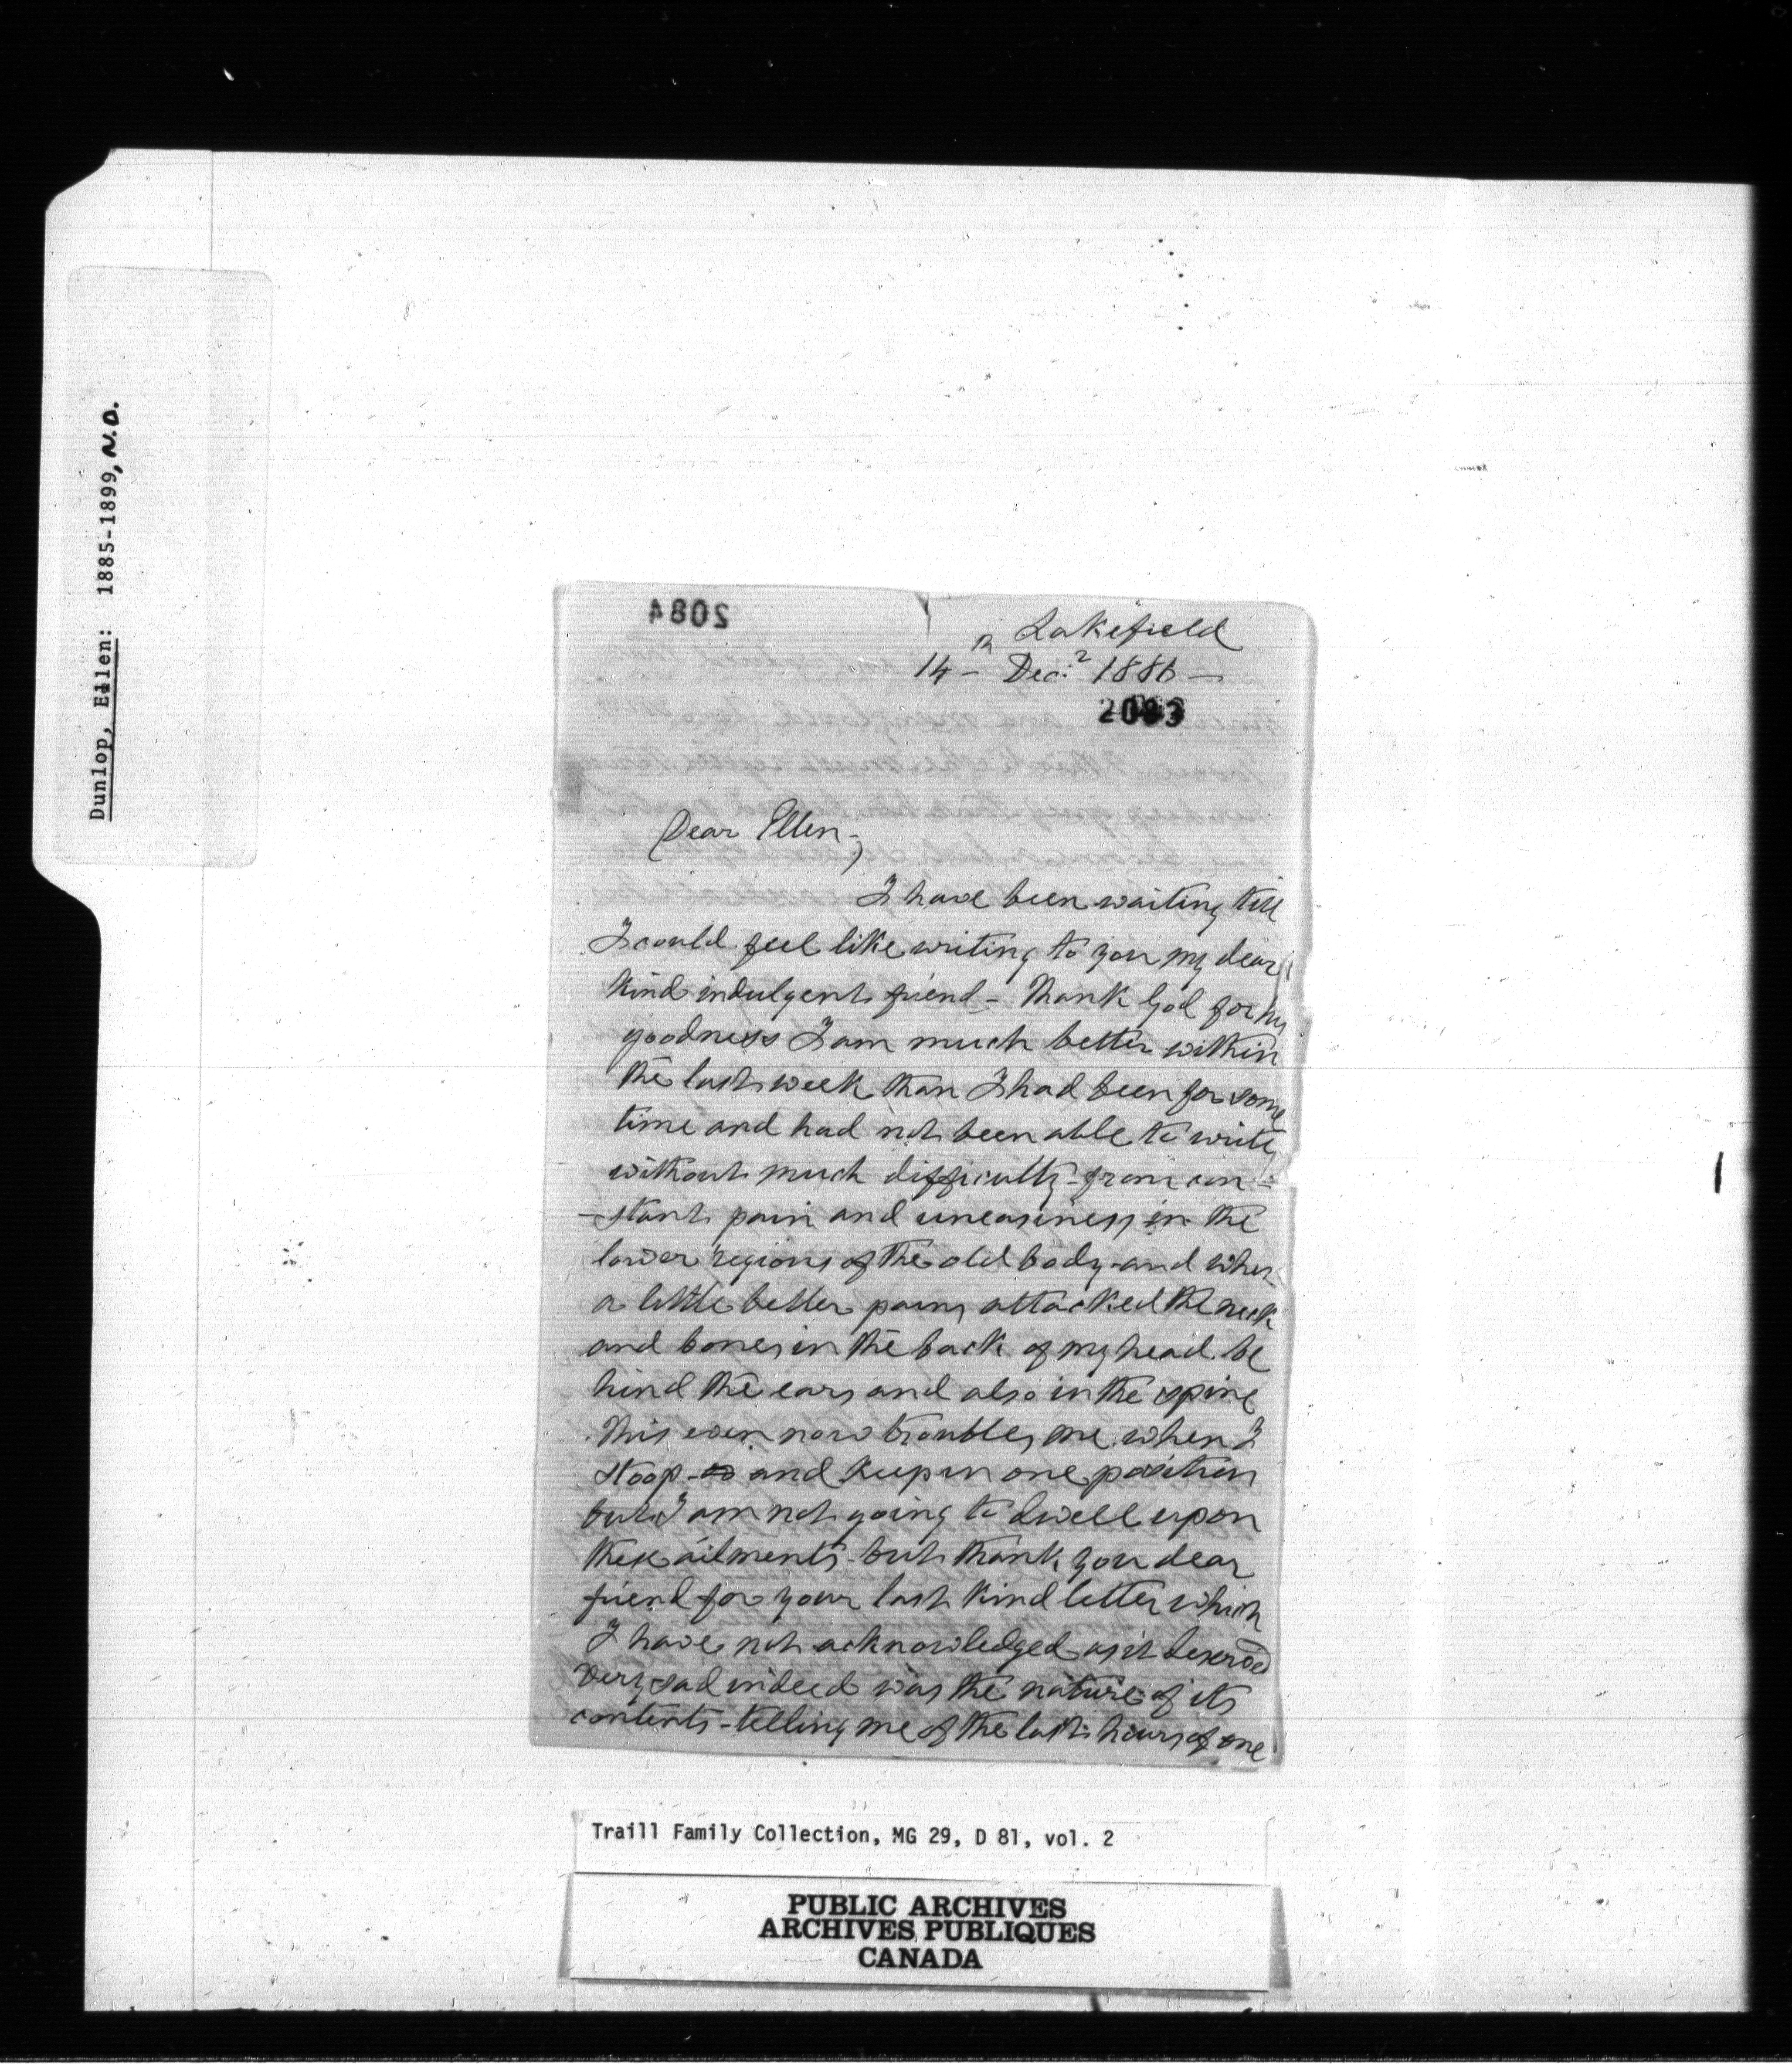 Dunlop, Ellen: 1885-1899, N.D.
2084
Lakefield
14th Dec: 1886
2083
Dear Ellen,
I have been waiting till
I could feel like writing to you my dear
kind indulgent friend - Thank God for his
goodness I am much better within
the last week than I had been for some
time and had not been able to write
without much difficulty - from con-
-stant pain and uneasiness in the
lower regions of the old body - and when
a little better pains attacked the neck
and bones in the back of my head be
hind the ears and also in the spine
This even now troubles me when I
stoop and keep in one position
but I am not going to dwell upon
these ailments - but thank you dear
friend for your last kind letter which
I have not acknowledged as it deserved
Very sad indeed was the nature of its
contents - telling me of the last hours of one
Traill Family Collection, MG 29, D 81, vol. 2
PUBLIC ARCHIVES
ARCHIVES PUBLIQUES
CANADA